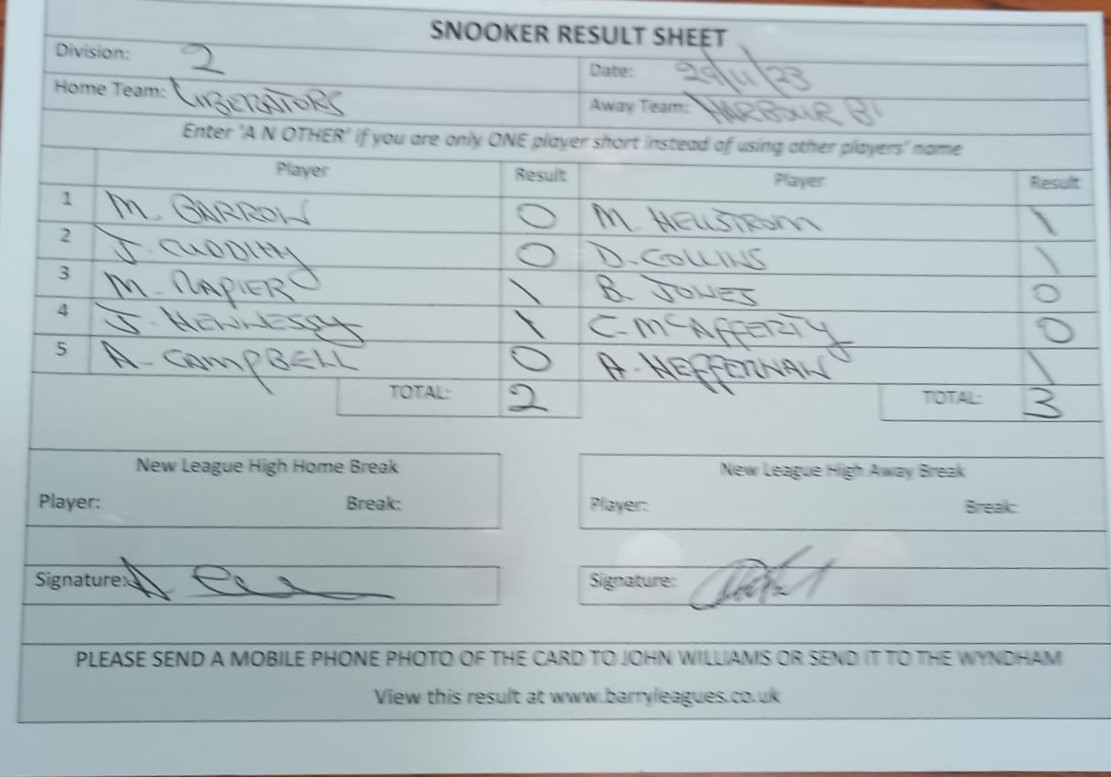 SNOOKER RESULT SHEET
Division: 2 Date: 29/11/23
Home Team: LIBERATORS Away Team: HARBOUR B'
Enter 'A N OTHER' if you are only ONE player short instead of using other players' name
Player Result Player Result
1 M. BARRON 0 M. HELLSTROM 1
2 J. CUDDIHY 0 D. COLLINS 1
3 M. NAPIER 1 B. JONES 0
4 J. HENNESSY 1 C. McAFFERTY 0
5 A. CAMPBELL 0 A. HEFFERNAN 1
TOTAL: 2 TOTAL: 3
New League High Home Break New League High Away Break
Player: Break: Player: Break:
Signature: Signature:
PLEASE SEND A MOBILE PHONE PHOTO OF THE CARD TO JOHN WILLIAMS OR SEND IT TO THE WYNDHAM
View this result at www.barryleagues.co.uk